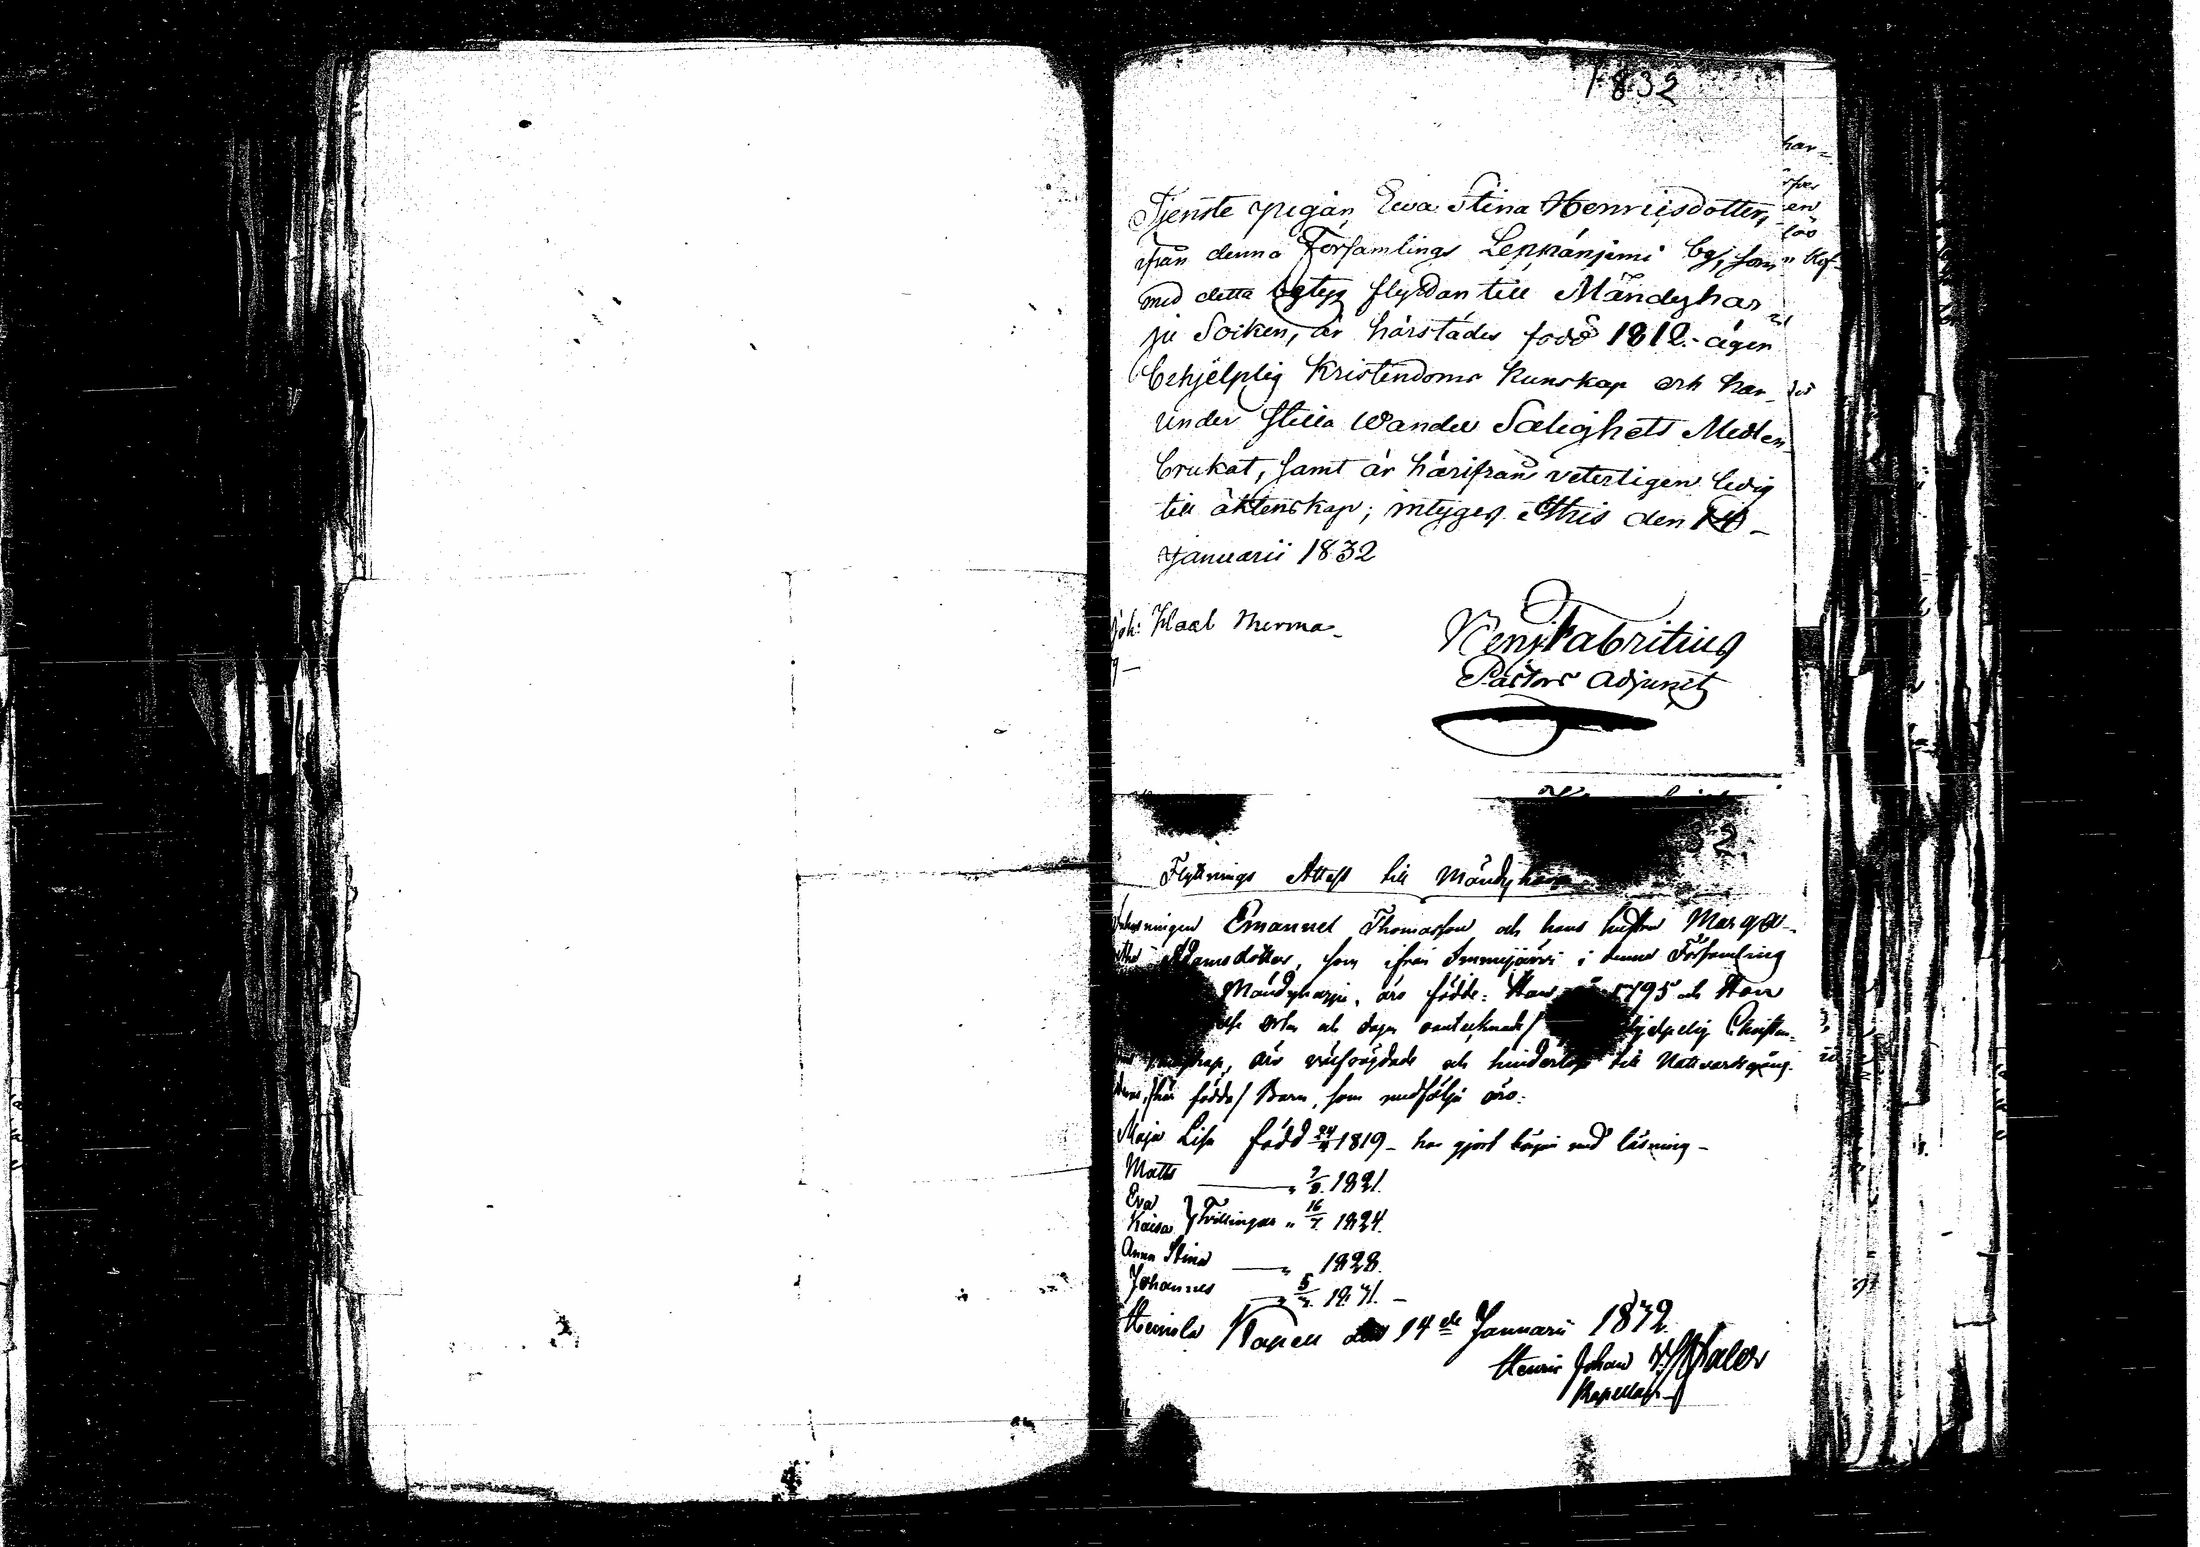 1832
Tjenste pigan, Ewa Stina Henricsdotter,
ifrån denna Församlings Leppänjemi by, som
med detta betyg flyttar till Mändyhar
ju Socken, är härstädes född 1812. äger
behjelplig Kristendoms kunskap och har
under stilla wandel Salighets Medlen
brukat, samt är härifrån veterligen ledig
till äktenskap; intygar. Ithis den 14
Januarii 1832
Benj Fabritius
Pastors Adjunct
Flyttnings Attest till Mändyhar
Emanuel Thomasson och hans hustru Marga-
Adamsdotter, som ifrån Immijärvi i denna Församling
Mändyharju, äro födde: Han 1795 och Hon
orten och dagen oantecknade/ hjelpelig Christen-
äro välfrägdade och hinderlöse till Nattvardsgång.
födde/ Barn, som medfölja äro:
Maja Lisa född 24 1819 - har gjort början med läsning -
Matts " 1821.
Eva
Kaisa } Tvillingar " 16/7 1824.
Anna Stina " 1828.
Johannes " 1831. -
Heinola Kapell den 14de Januarii 1832.
Henric Johan
Kapellan